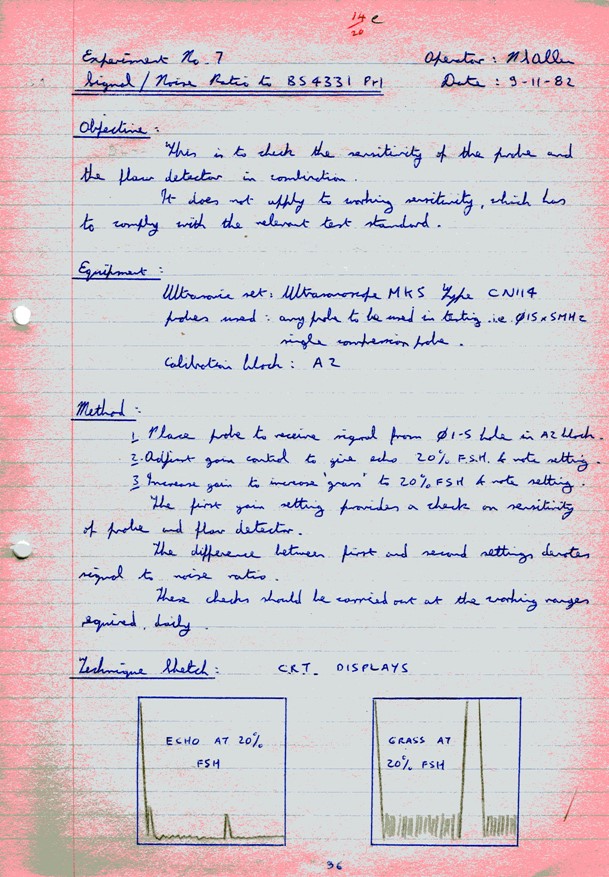 14/20 c
Experiment No. 7 Operator: N S Allen
Signal / Noise Ratio to BS4331 Pt1 Date: 9-11-82
Objective:
This is to check the sensitivity of the probe and
the flaw detector in combination.
It does not apply to working sensitivity, which has
to comply with the relevant test standard.
Equipment:
Ultrasonic set: Ultrasonoscope MKS Type CN114
probes used: any probe to be used in testing i.e. Ø15 x 5MHz
single compression probe.
Calibration block: A2
Method:
1 Place probe to receive signal from Ø1-5 hole in A2 block.
2. Adjust gain control to give echo 20% F.S.H. & note setting.
3 Increase gain to increase 'grass' to 20% FSH & note setting.
The first gain setting provides a check on sensitivity
of probe and flaw detector.
The difference between first and second settings denotes
signal to noise ratio.
These checks should be carried out at the working ranges
required, daily.
Technique Sketch: C.R.T. DISPLAYS
ECHO AT 20%
FSH
GRASS AT
20% FSH
36